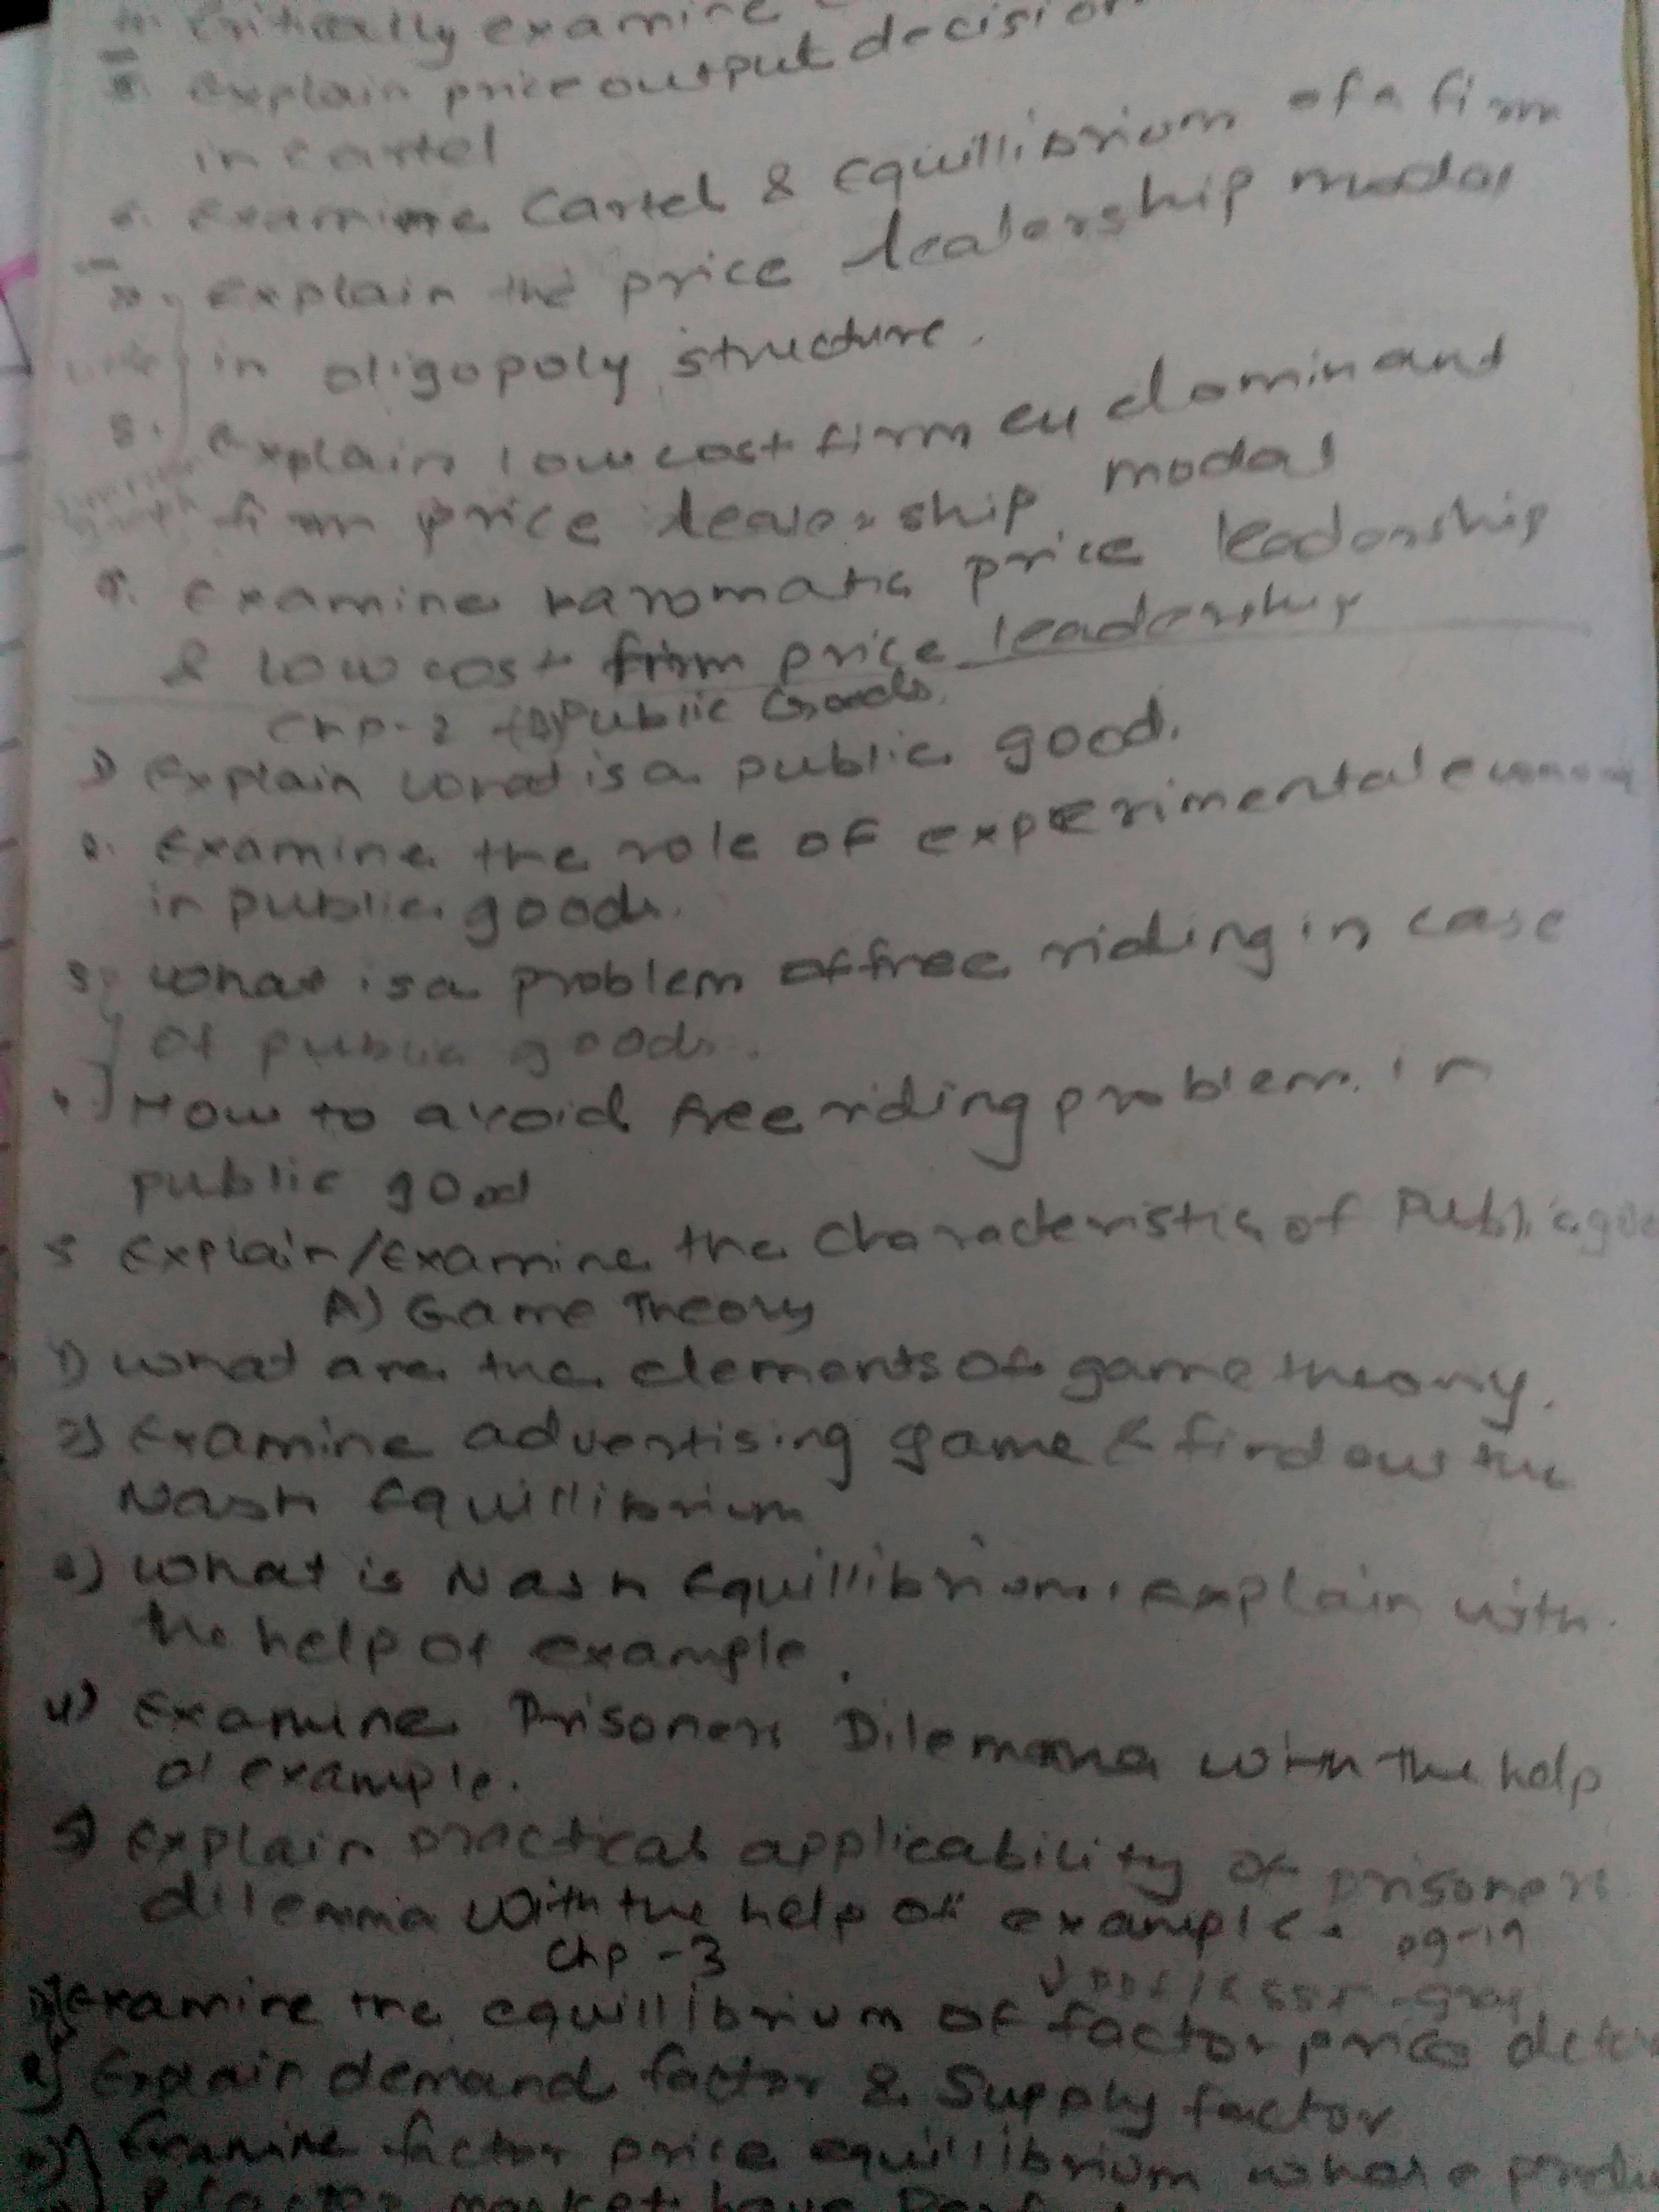 critically examine
5. explain price output decision
in cartel
6. examine Cartel & Equillibrium of a firm
explain the price leadership modal
in oligopoly structure.
8. explain low cost firm dominand
firm price leadership modal
9. Examine baromatic price leadership
& low cost firm price leadership
Chp-2 (B) Public Goods.
1) Explain what is a public good.
2. Examine the role of experimental
in public goods.
3. what is a problem of free riding in case
of public goods.
4. How to avoid free riding problem in
public good
5 Explain/Examine the Characteristic of Public
A) Game Theory
1) what are the elements of game theory.
2) Examine advertising game & find out the
Nash Equillibrium
3) What is Nash Equillibrium. explain with
the help of example.
4) Examine Prisoners Dilemma with the help
of example.
5) Explain practical applicability of prisoners
dilemma with the help of example. pg-19
Chp-3
1) Examine the equillibrium of factor price
2) Explain demand factor & Supply factor
3) Examine factor price equillibrium where
& factor market have